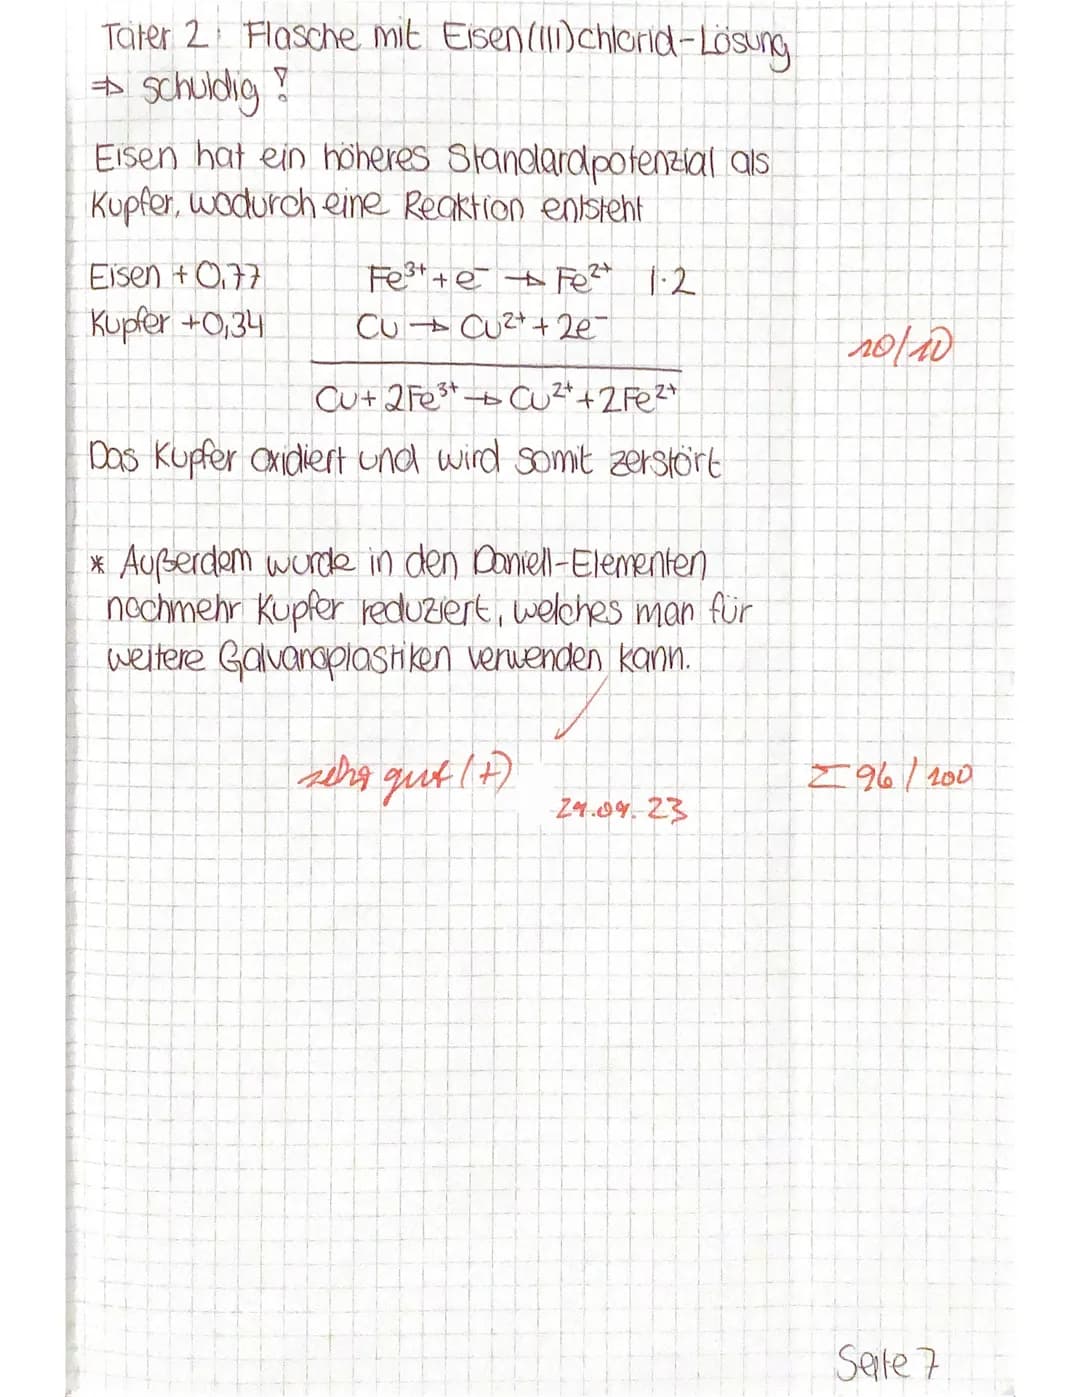 Täter 2: Flasche mit Eisen(III)chlorid-Lösung
⇒ schuldig!
Eisen hat ein höheres Standardpotenzial als
Kupfer, wodurch eine Reaktion entsteht
Eisen +0,77 Fe³⁺ + e⁻ → Fe²⁺ |·2
Kupfer +0,34 Cu → Cu²⁺ + 2e⁻
10/10
Cu + 2Fe³⁺ → Cu²⁺ + 2Fe²⁺
Das Kupfer oxidiert und wird somit zerstört
* Außerdem wurde in den Daniell-Elementen
nochmehr Kupfer reduziert, welches man für
weitere Galvanoplastiken verwenden kann.
sehr gut (+)
Σ 96 / 100
29.09.23
Seite 7